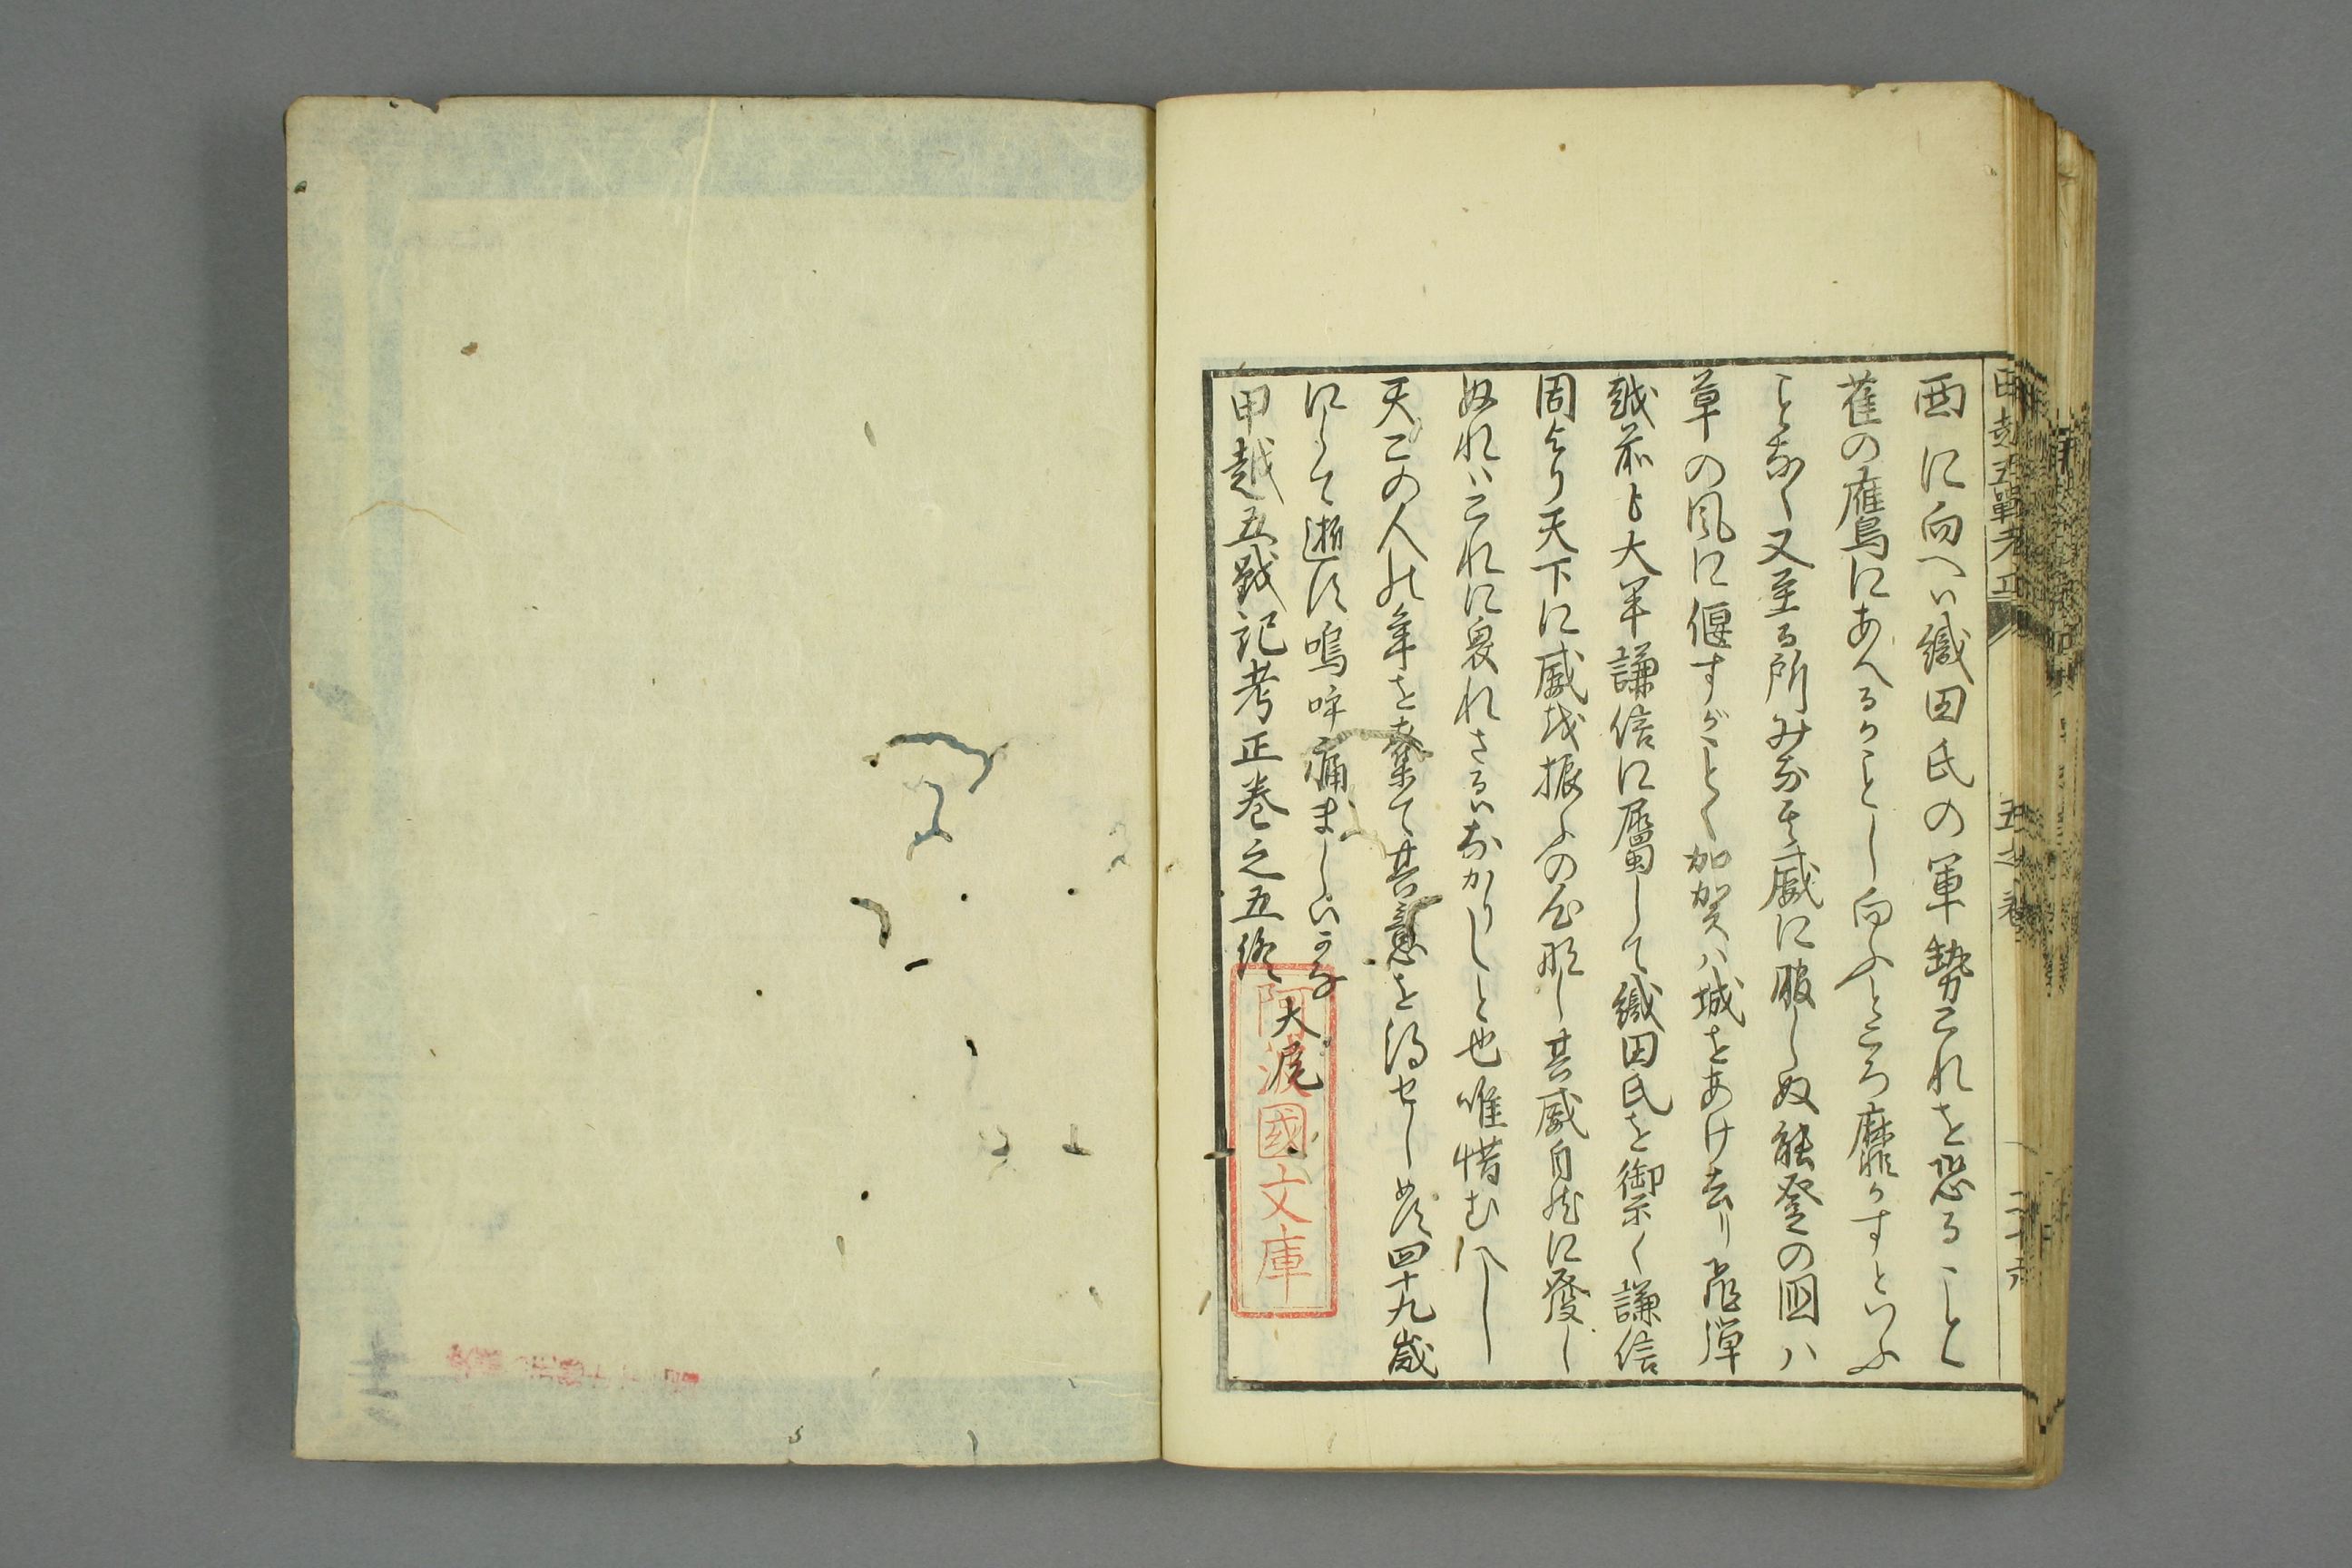 西に向へハ織田氏の軍勢これを恐ること
雀の鷹鳥にあへるかことし向ふところ靡かすといふ
ことなく又至る所みな其威に服しぬ能登の国ハ
草の風に偃すがことく加賀ハ城をあけ去り飛弾
越前も大半謙信に属して織田氏を御禦く謙信
周より天下に威を振ふの名那し其威自然に発し
ぬれハこれに畏れさるハなかりしと也唯惜むへし
天この人の年を棄て其意を得せしめす四十九歳
にして逝す嗚呼痛ましいかな
大尾
甲越五戦記考正巻之五終
阿波國文庫
五之巻
二十六